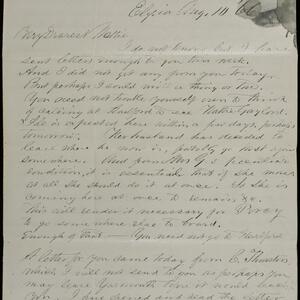 Elyria Aug. 14 '66
Very Dearest Nettie
I do not know but I have
sent letters enough to you this week.
And I did not get any from you today.
But perhaps I would mix a thing or two.
You need not trouble yourself even to think
of calling at Hartford to see Katie Gaylord.
She is expected here within a few days, perhaps
tomorrow. Her husband has decided to
leave where he now is, partly to rest upon
somewhere. And from Mrs G's peculiar
condition, it is essential that if she moves
at all she should do it at once. So she is
coming here at once to remain &c.
This will render it necessary for
to go somewhere else to board.
Enough of that — You need not go to Hartford
A letter for you came today from E. Thurston
which I will not send to you as perhaps you
may leave Yarmouth before it would reach
you. I had opened and read the